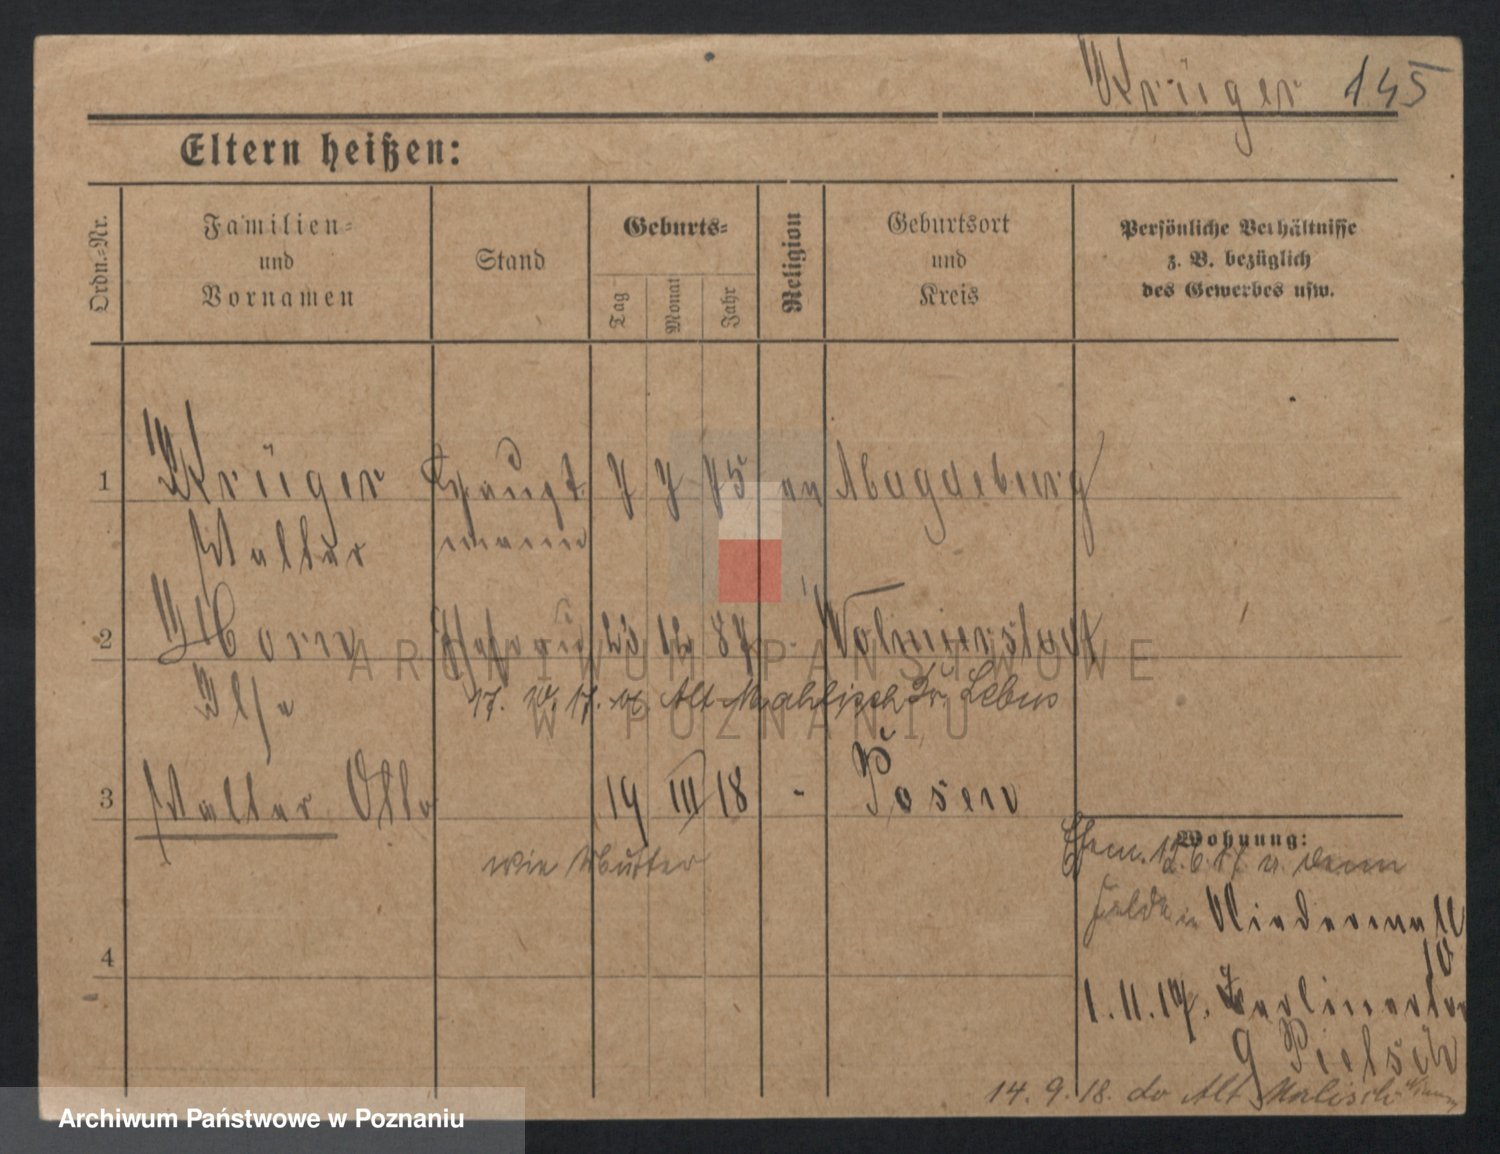 Krüger 145
Eltern heißen:
Ordn.-Nr.
Familien-
und
Vornamen
Stand
Geburts-
Tag
Monat
Jahr
Religion
Geburtsort
und
Kreis
Persönliche Verhältnisse
z. B. bezüglich
des Gewerbes usw.
1 Krüger Haupt 7 7 75 ev Magdeburg
Walter mann
2 Horn Ehefrau 23 12 87 - Wolmirstedt
Ilse
17. 17. Alt Mahlisch Kr. Lebus
3 Walter Otto 19 III 18 - Posen
wie Mutter
4
Wohnung:
Niederwall
10
1.11.17. Berlinerstr
9 Pietsch
14.9.18. do Alt Malisch
ARCHIWUM PAŃSTWOWE
W POZNANIU
Archiwum Państwowe w Poznaniu